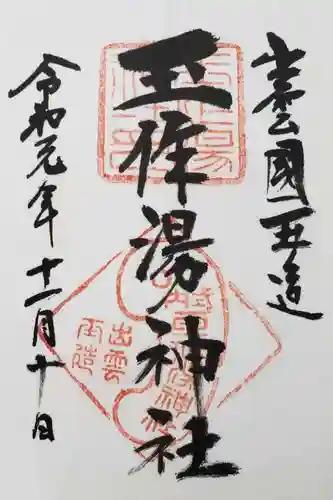 出雲國玉造
玉作湯神社
令和元年十一月十日
出雲
玉造